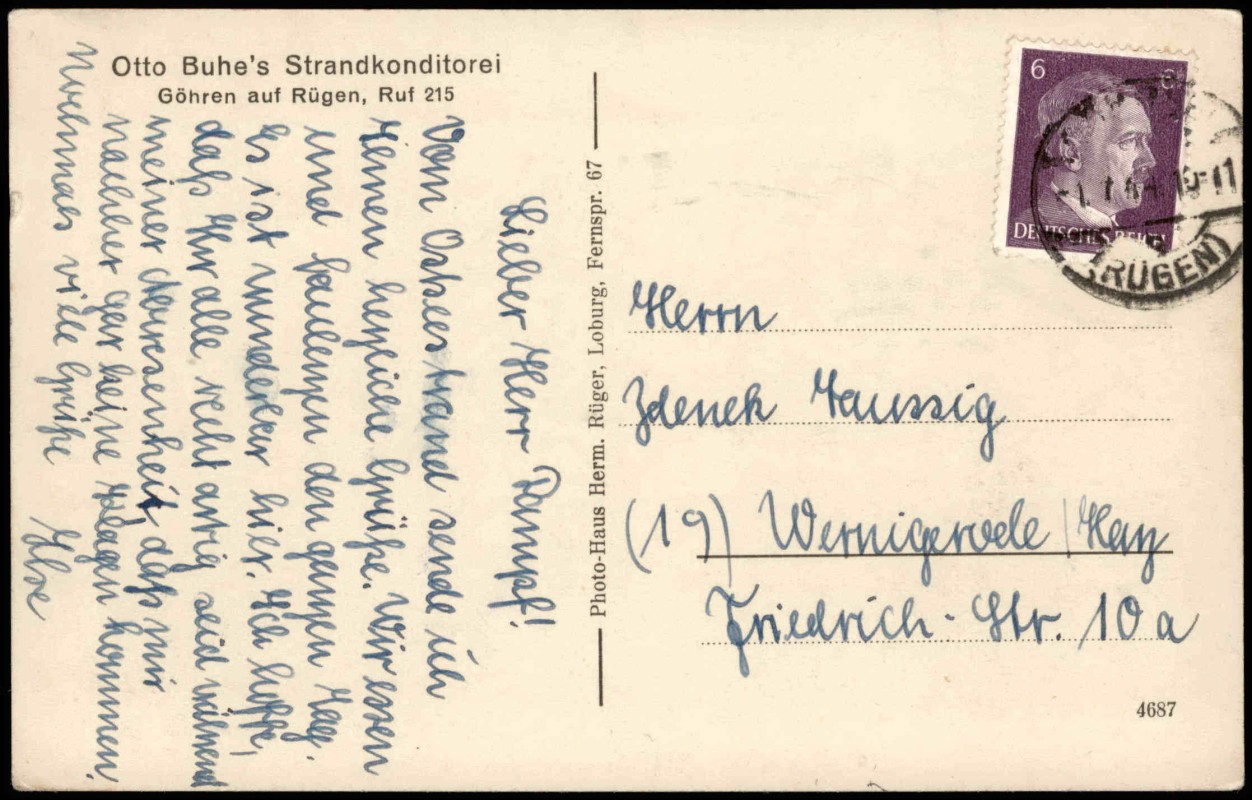 Otto Buhe's Strandkonditorei
Göhren auf Rügen, Ruf 215
Lieber Herr Dampf!
Vom Ostseestrand sende ich
Ihnen herzliche Grüße. Wir essen
und faulenzen den ganzen Tag.
Es ist wunderbar hier. Ich hoffe,
daß Ihr alle recht artig seid während
meiner Abwesenheit, daß mir
nachher gar keine Klagen kommen.
Nochmals viele Grüße
Ilse
Photo-Haus Herm. Rüger, Loburg, Fernspr. 67
6 6
DEUTSCHES REICH
10-11
(RÜGEN)
Herrn
Zdenek Taussig
(19) Wernigerode / Harz
Friedrich-Str. 10a
4687